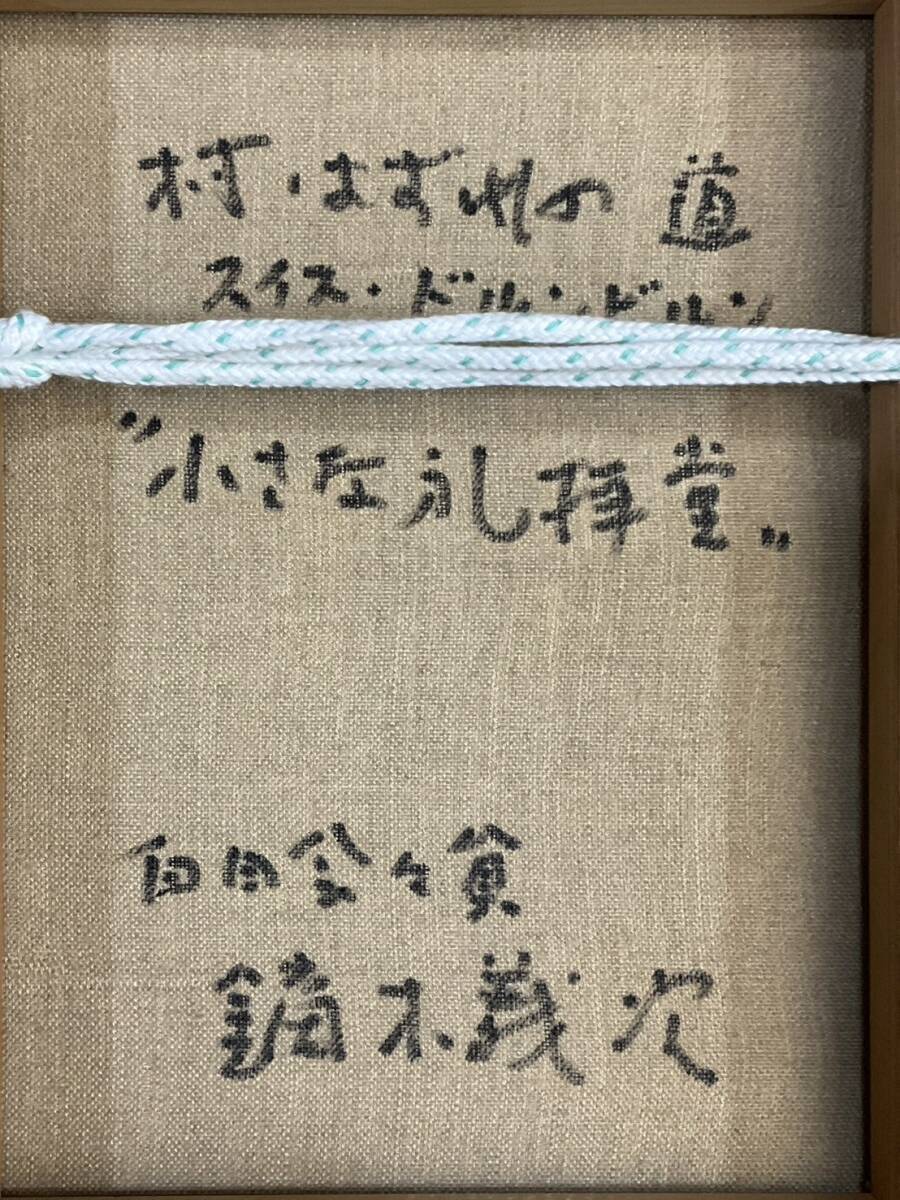 村はずれの道
スイス・ドルンドルン
"小さな礼拝堂"
白日会々員
鏑木義次